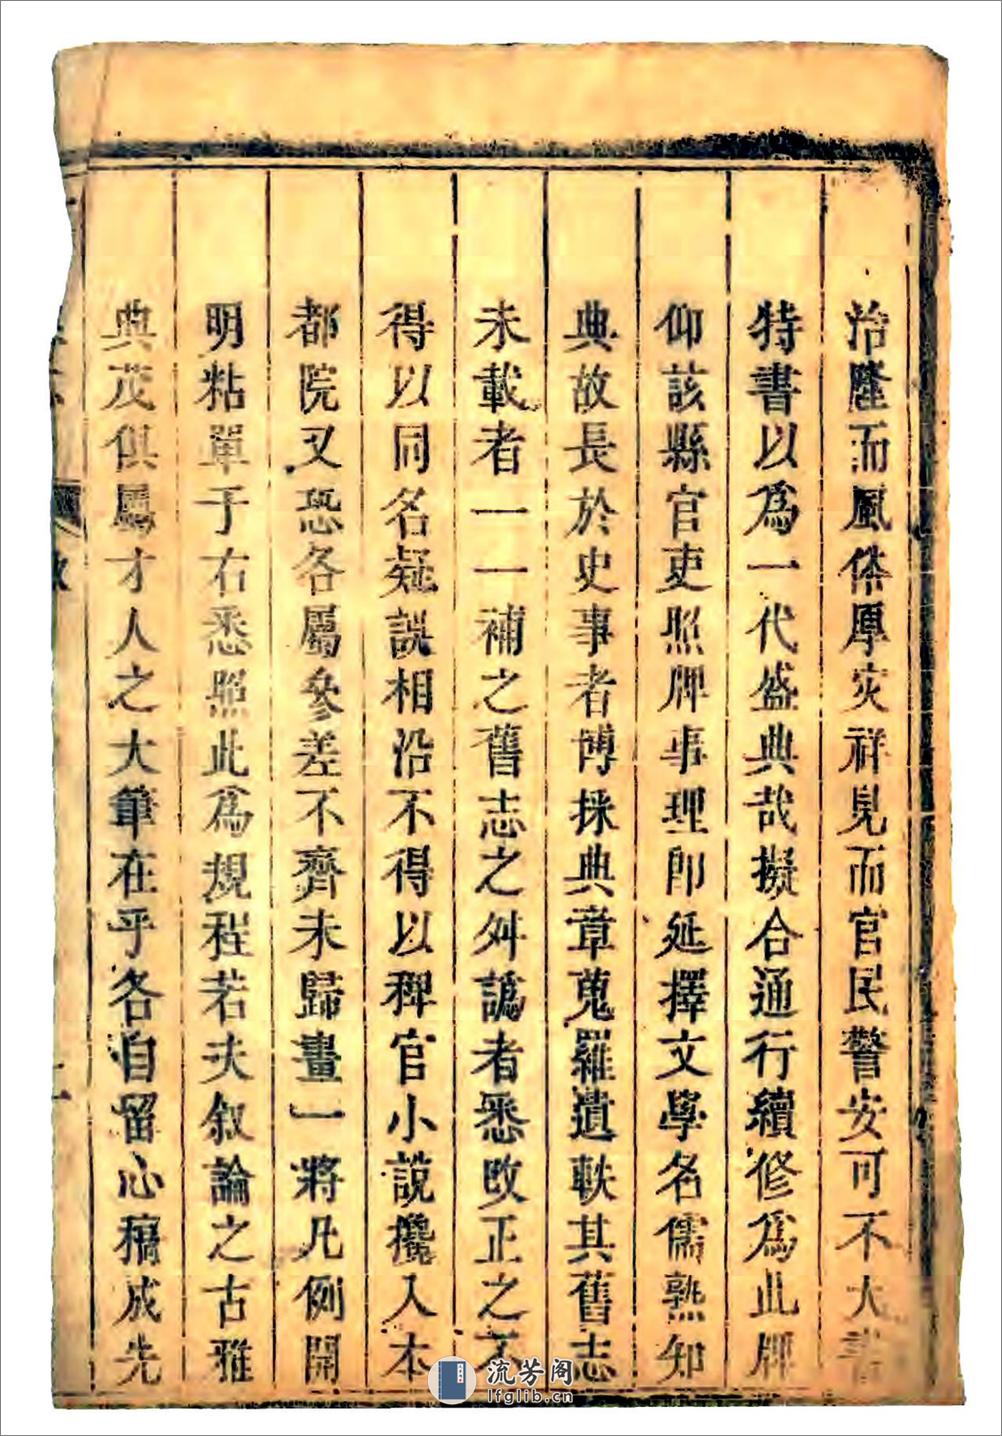 治隆而風俗厚灾祥見而官民警安可不大書
特書以爲一代盛典哉擬合通行續修爲此牌
仰該縣官吏照牌事理即延擇文學名儒熟知
典故長於史事者博採典章蒐羅遺軼其舊志
未載者一一補之舊志之舛譌者悉改正之不
得以同名疑誤相沿不得以稗官小說攙入本
都院又恐各屬參差不齊未歸畫一將凡例開
明粘單于右悉照此爲規程若夫叙論之古雅
典茂俱屬才人之大筆在乎各自留心稿成先
流芳阁
lfglib.cn